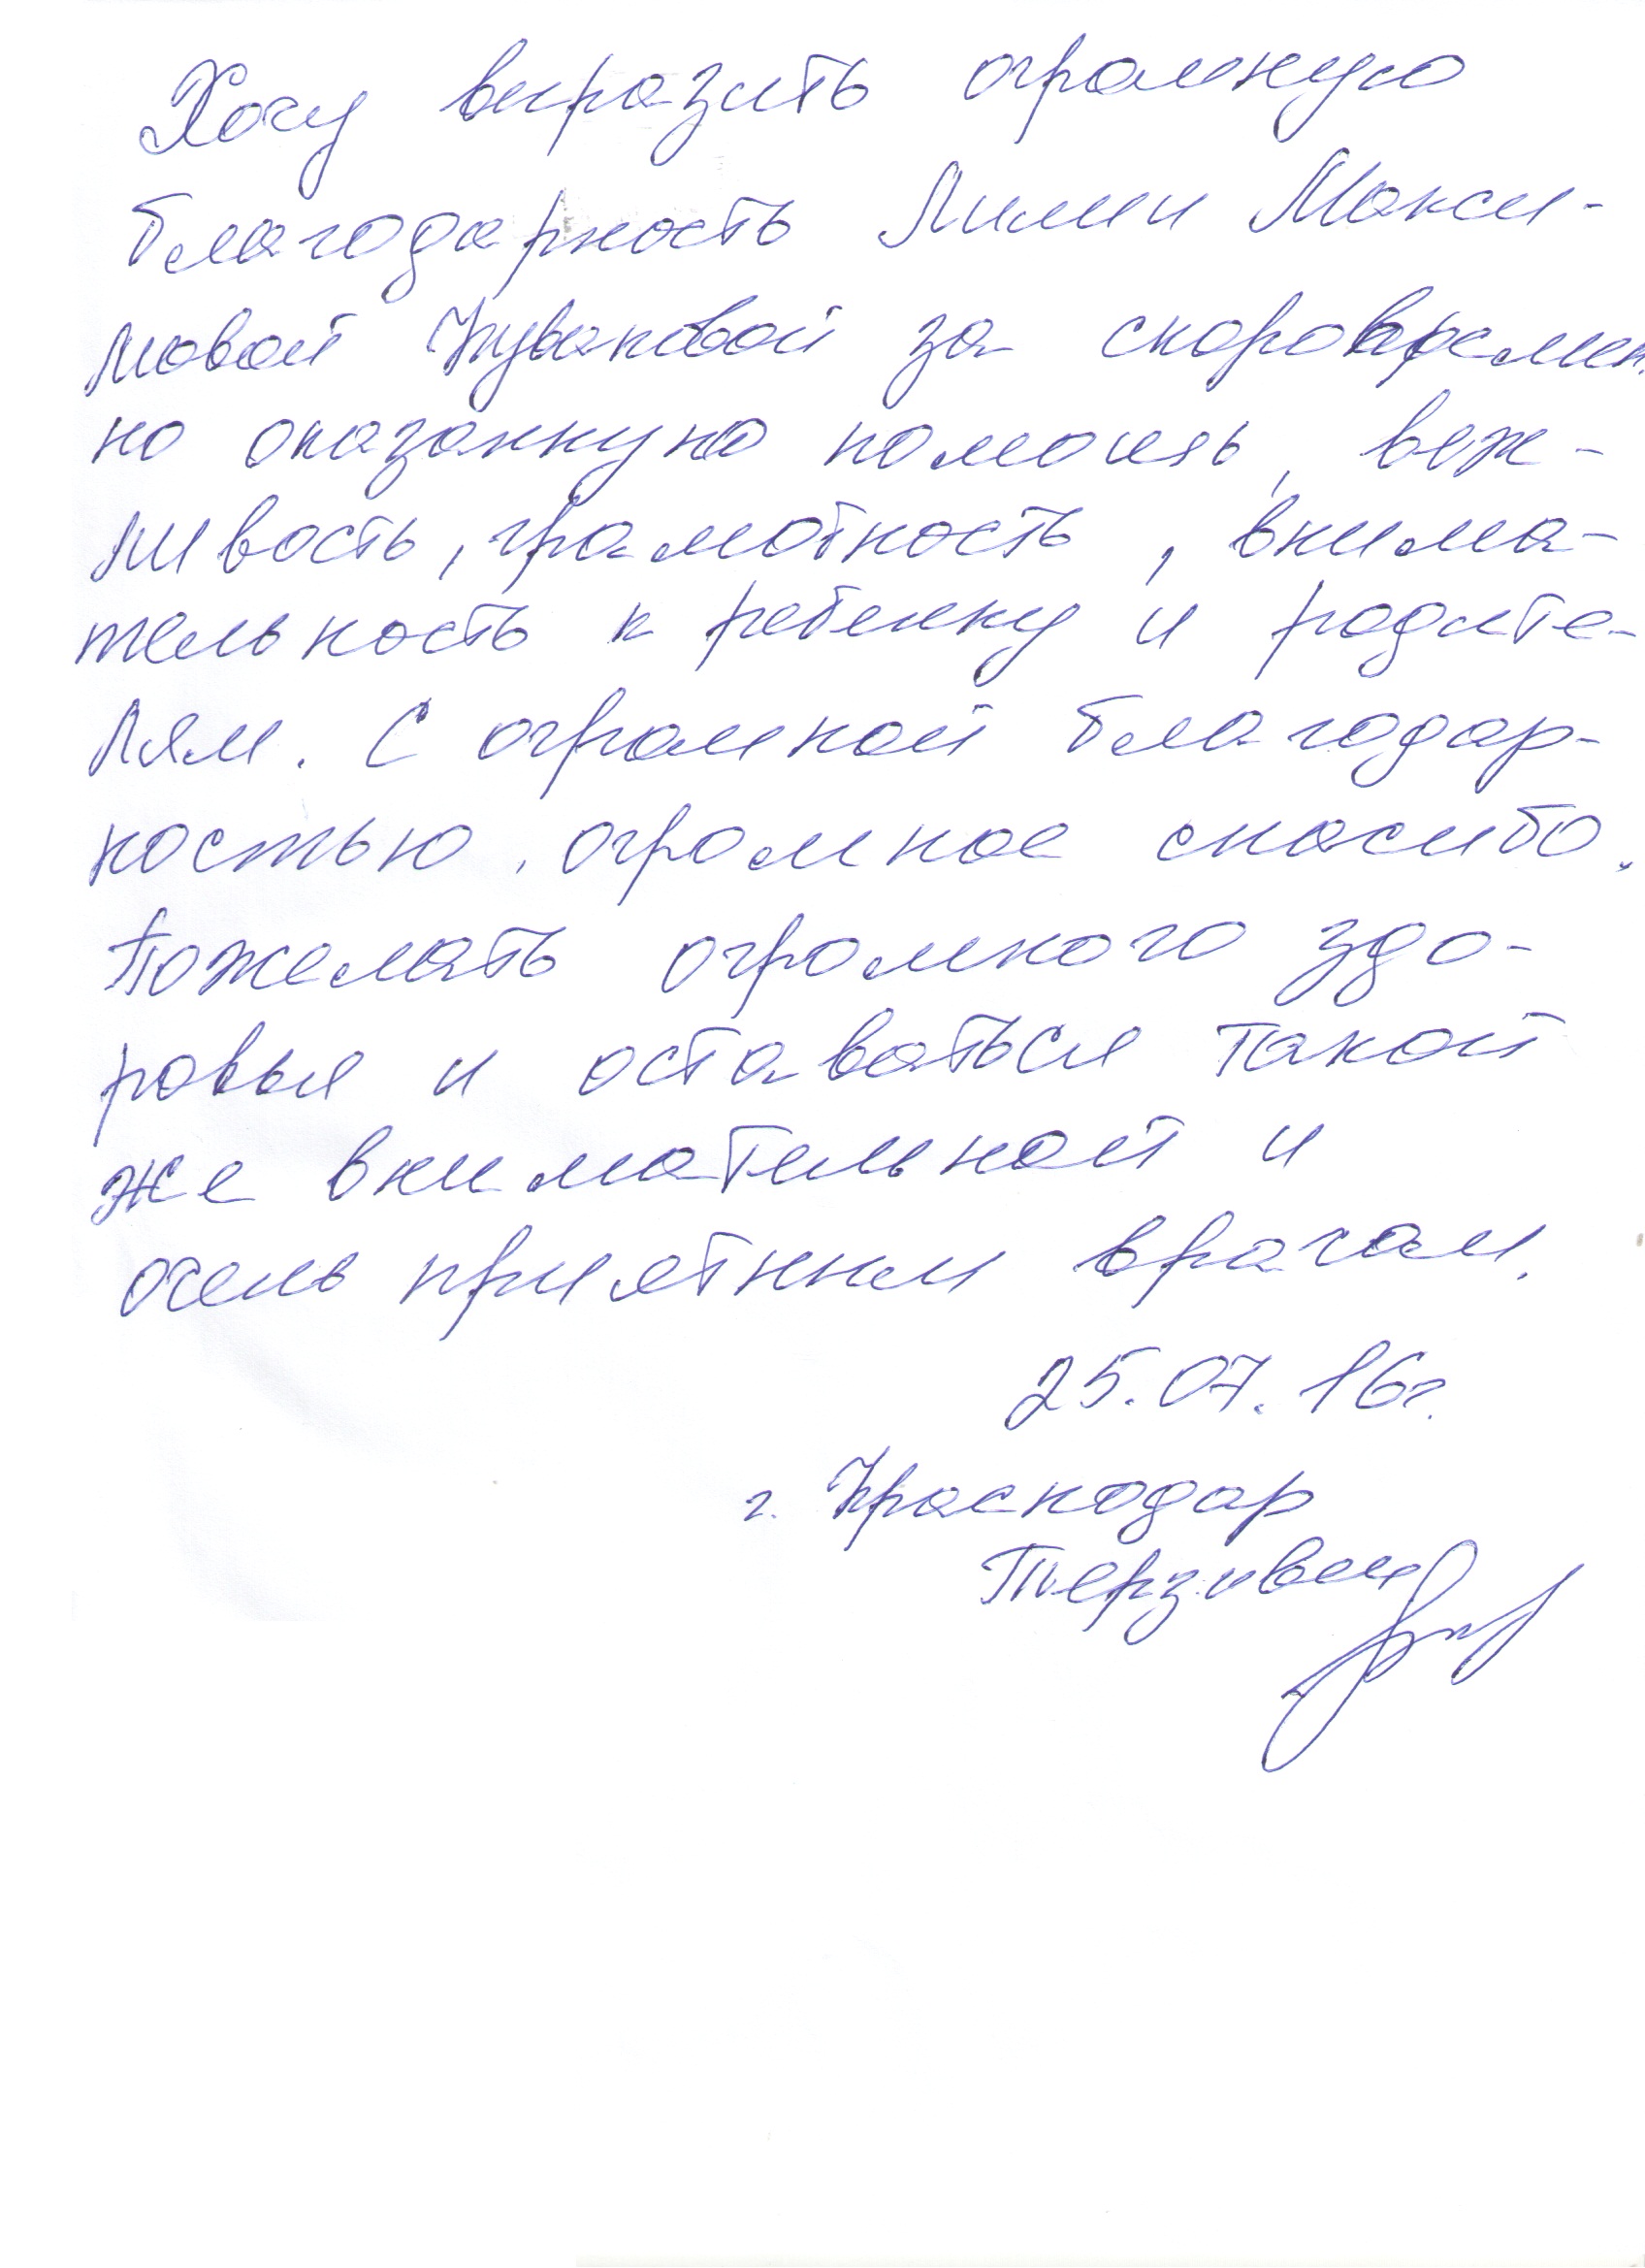 Хочу выразить огромную
благодарность Лилии Макси-
мовой Куваковой за скоровремен
но оказанную помощь, веж-
ливость, грамотность, внима-
тельность к ребенку и родите-
лям. С огромной благодар-
ностью, огромное спасибо.
Пожелать огромного здо-
ровья и оставаться такой
же внимательной и
очень приятным врачам.
25.07.16г.
г. Краснодар